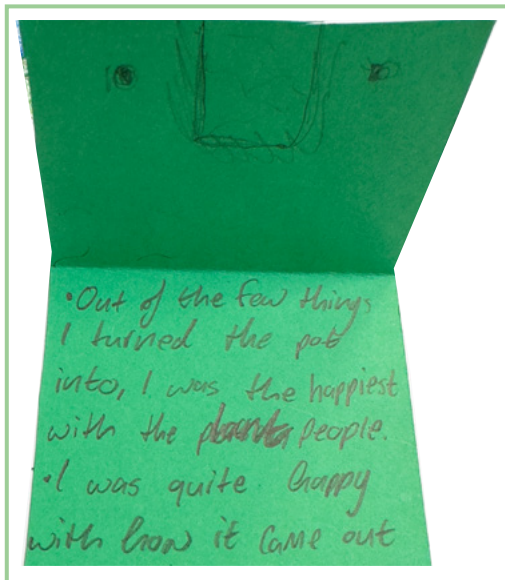 •Out of the few things
I turned the pot
into, I was the happiest
with the people.
•I was quite happy
with how it came out